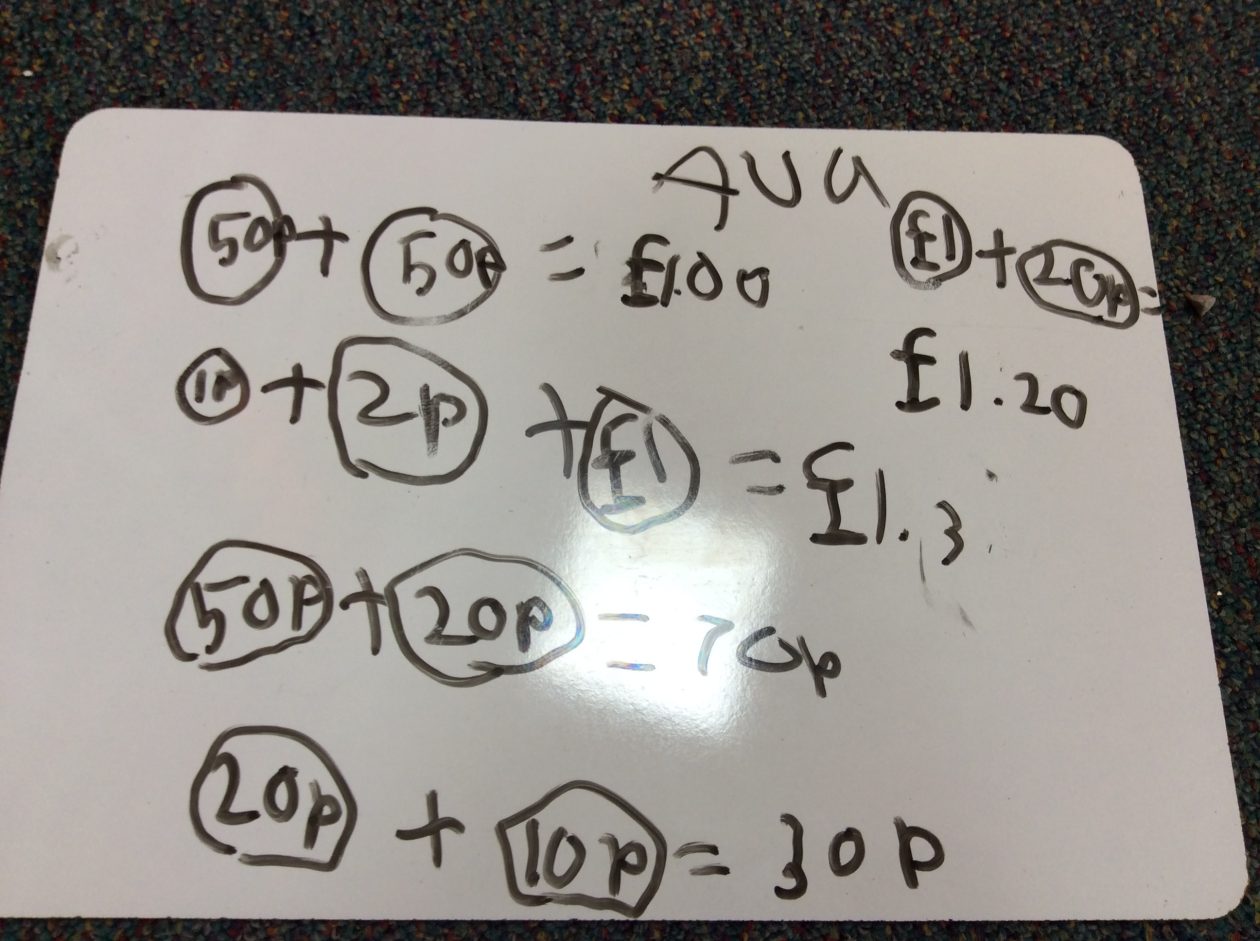 AVA
50p + 50p = £1.00
£1 + 20p =
£1.20
1p + 2p + £1 = £1.3
50p + 20p = 70p
20p + 10p = 30p